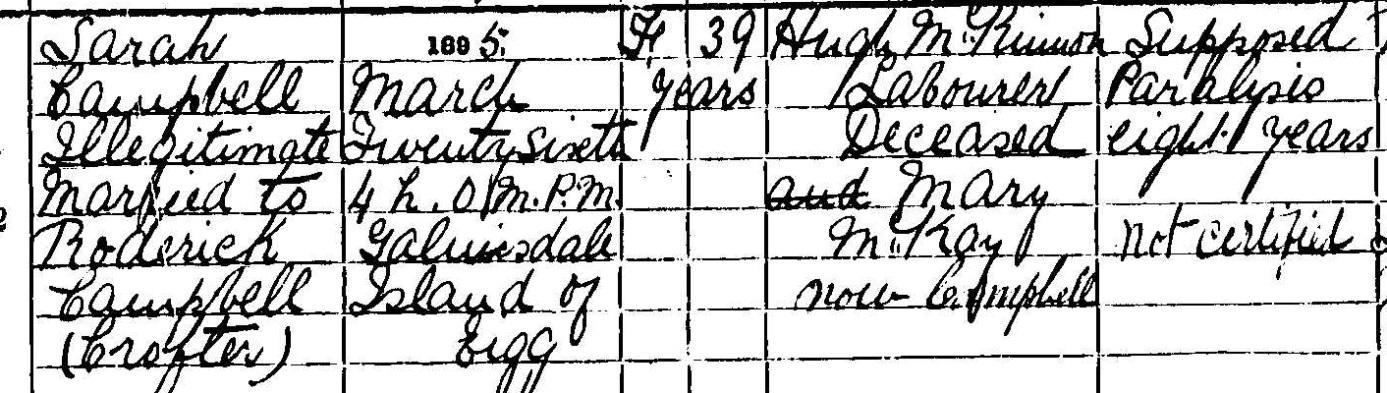 Sarah 1895 F 39 Hugh McKinnon Supposed
Campbell March years Labourer Paralysis
Illegitimate Twenty Sixth Deceased eight years
Married to 4 h. 0 m. P.M. and Mary
Roderick Galmisdale McKay not certified
Campbell Island of now Campbell
(Crofter) Eigg